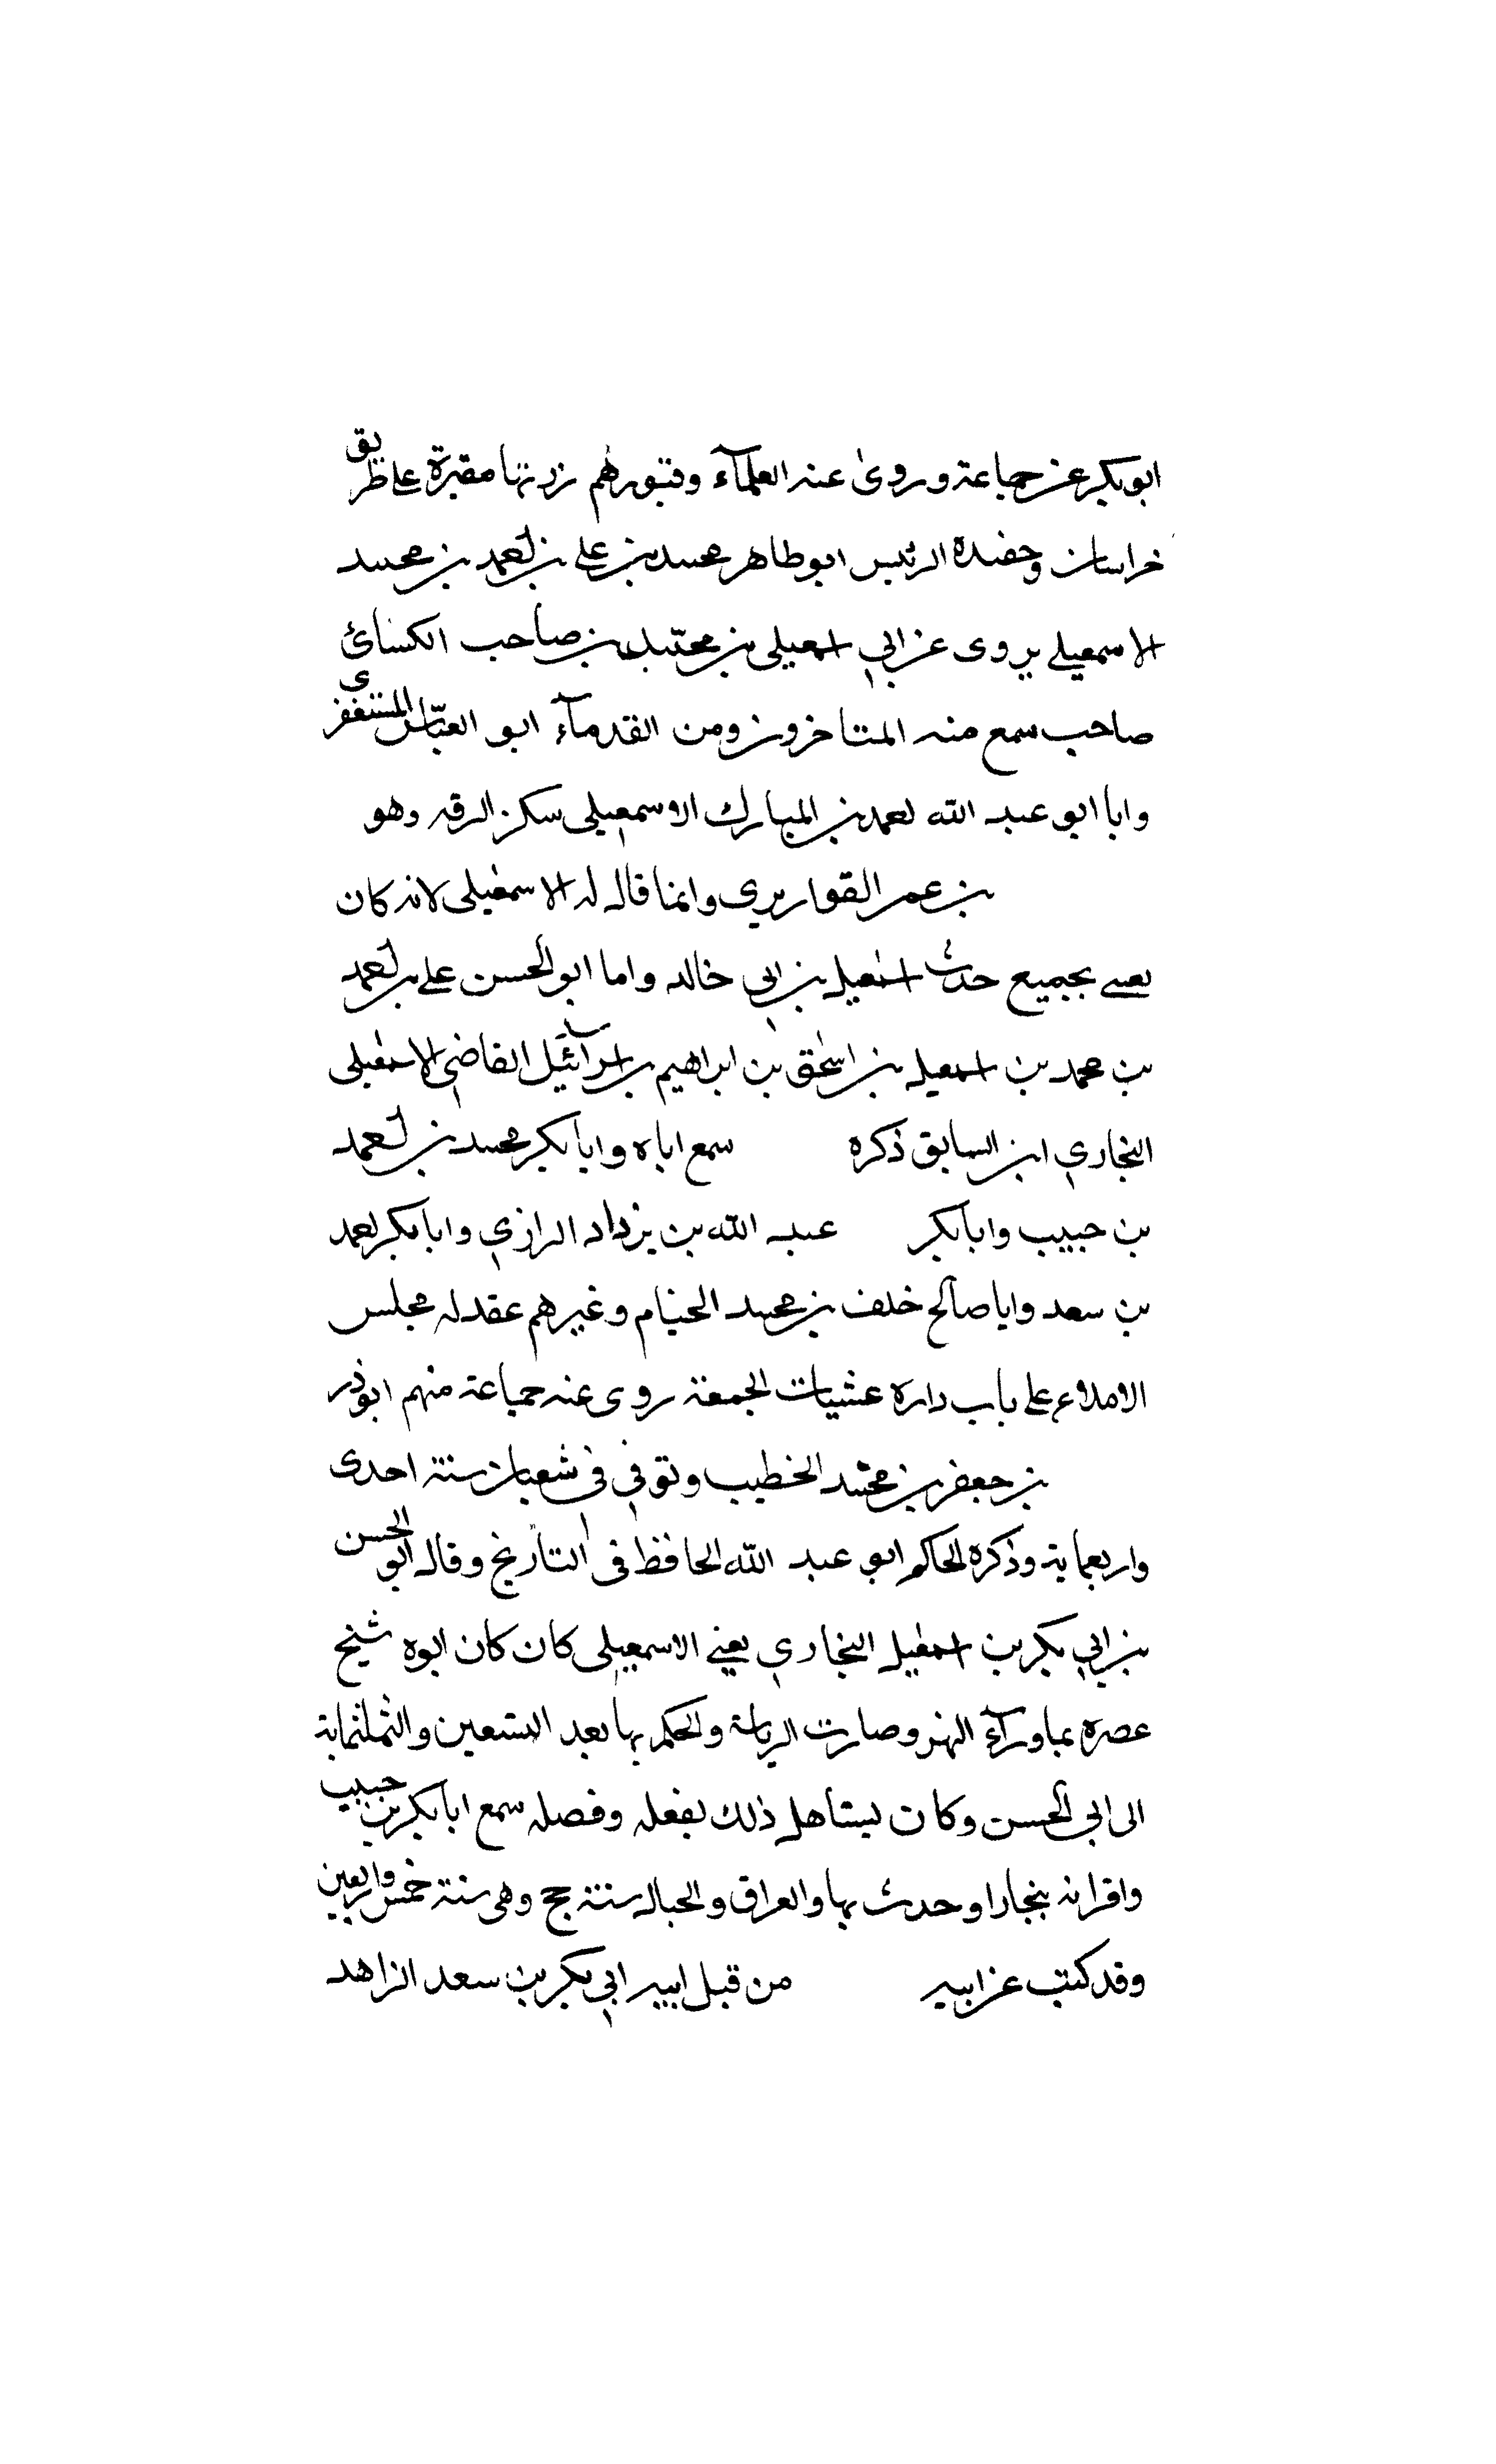 ابو بكر عن جماعة وروى عنه العلماء وقبورهم زرتها مقبرة على طريق
خراسان وحفيده الرئيس ابو طاهر محمد بن على بن احمد بن محمد
الاسمعيلى يروى عن ابي اسمعيلى بن محمد بن صاحب الكسائى
صاحب سمع منه المتاخرون ومن القدمآء ابو العباس المستغفرى
وابا ابو عبد الله احمد بن المبارك الاسمعيلى سكن الرقه وهو
بن عمر القواريرى وانما قال له الاسمعيلى لانه كان
يعنى بجميع حدث اسمعيل بن ابي خالد واما ابو الحسن على بن احمد
بن محمد بن اسمعيل بن اسحق بن ابراهيم بن اسرآئيل القاضى الاسمعيلى
البخاري ابن السابق ذكره سمع اباه وابا بكر محمد بن احمد
بن حبيب وابا بكر عبد الله بن يزداد الرازي وابا بكر احمد
بن سعد وابا صالح خلف بن محمد الخيام وغيرهم عقد له مجلس
الاملاء على باب داره عشيات الجمعة روى عنه جماعة منهم ابو ذر
بن جعفر بن محمد الخطيب وتوفي في شعبان سنة احدى
واربعماية وذكره الحاكم ابو عبد الله الحافظ فى التاريخ وقال ابو الحسن
بن ابي بكر بن اسمعيل البخاري يعنى الاسمعيلى كان كان ابوه شيخ
عصره بماورآء النهر وصارت الرياسة والحكم بها بعد التسعين والثلثماية
الى ابي الحسن وكان يستاهل ذلك بفعله وفضله سمع ابا بكر بن حبيب
واقرانه ببخارا وحدث بها والعراق والجبال سنة حج وهى سنة خمس واربعين
وقد كتب عن ابيه من قبل ابيه ابي بكر بن سعد الزاهد